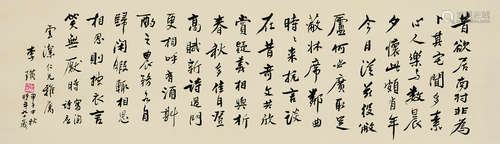 昔欲居南村非為
卜其宅聞多素
心人樂與數晨
夕懷此頗有年
今日從茲役敝
廬何必廣取足
蔽牀席鄰曲
時時來抗言談
在昔奇文共欣
賞疑義相與析
春秋多佳日登
高賦新詩過門
更相呼有酒斟
酌之農務各自
歸閑暇輒相思
相思則披衣言
笑無厭時
仁兄雅屬
李
甲子中秋